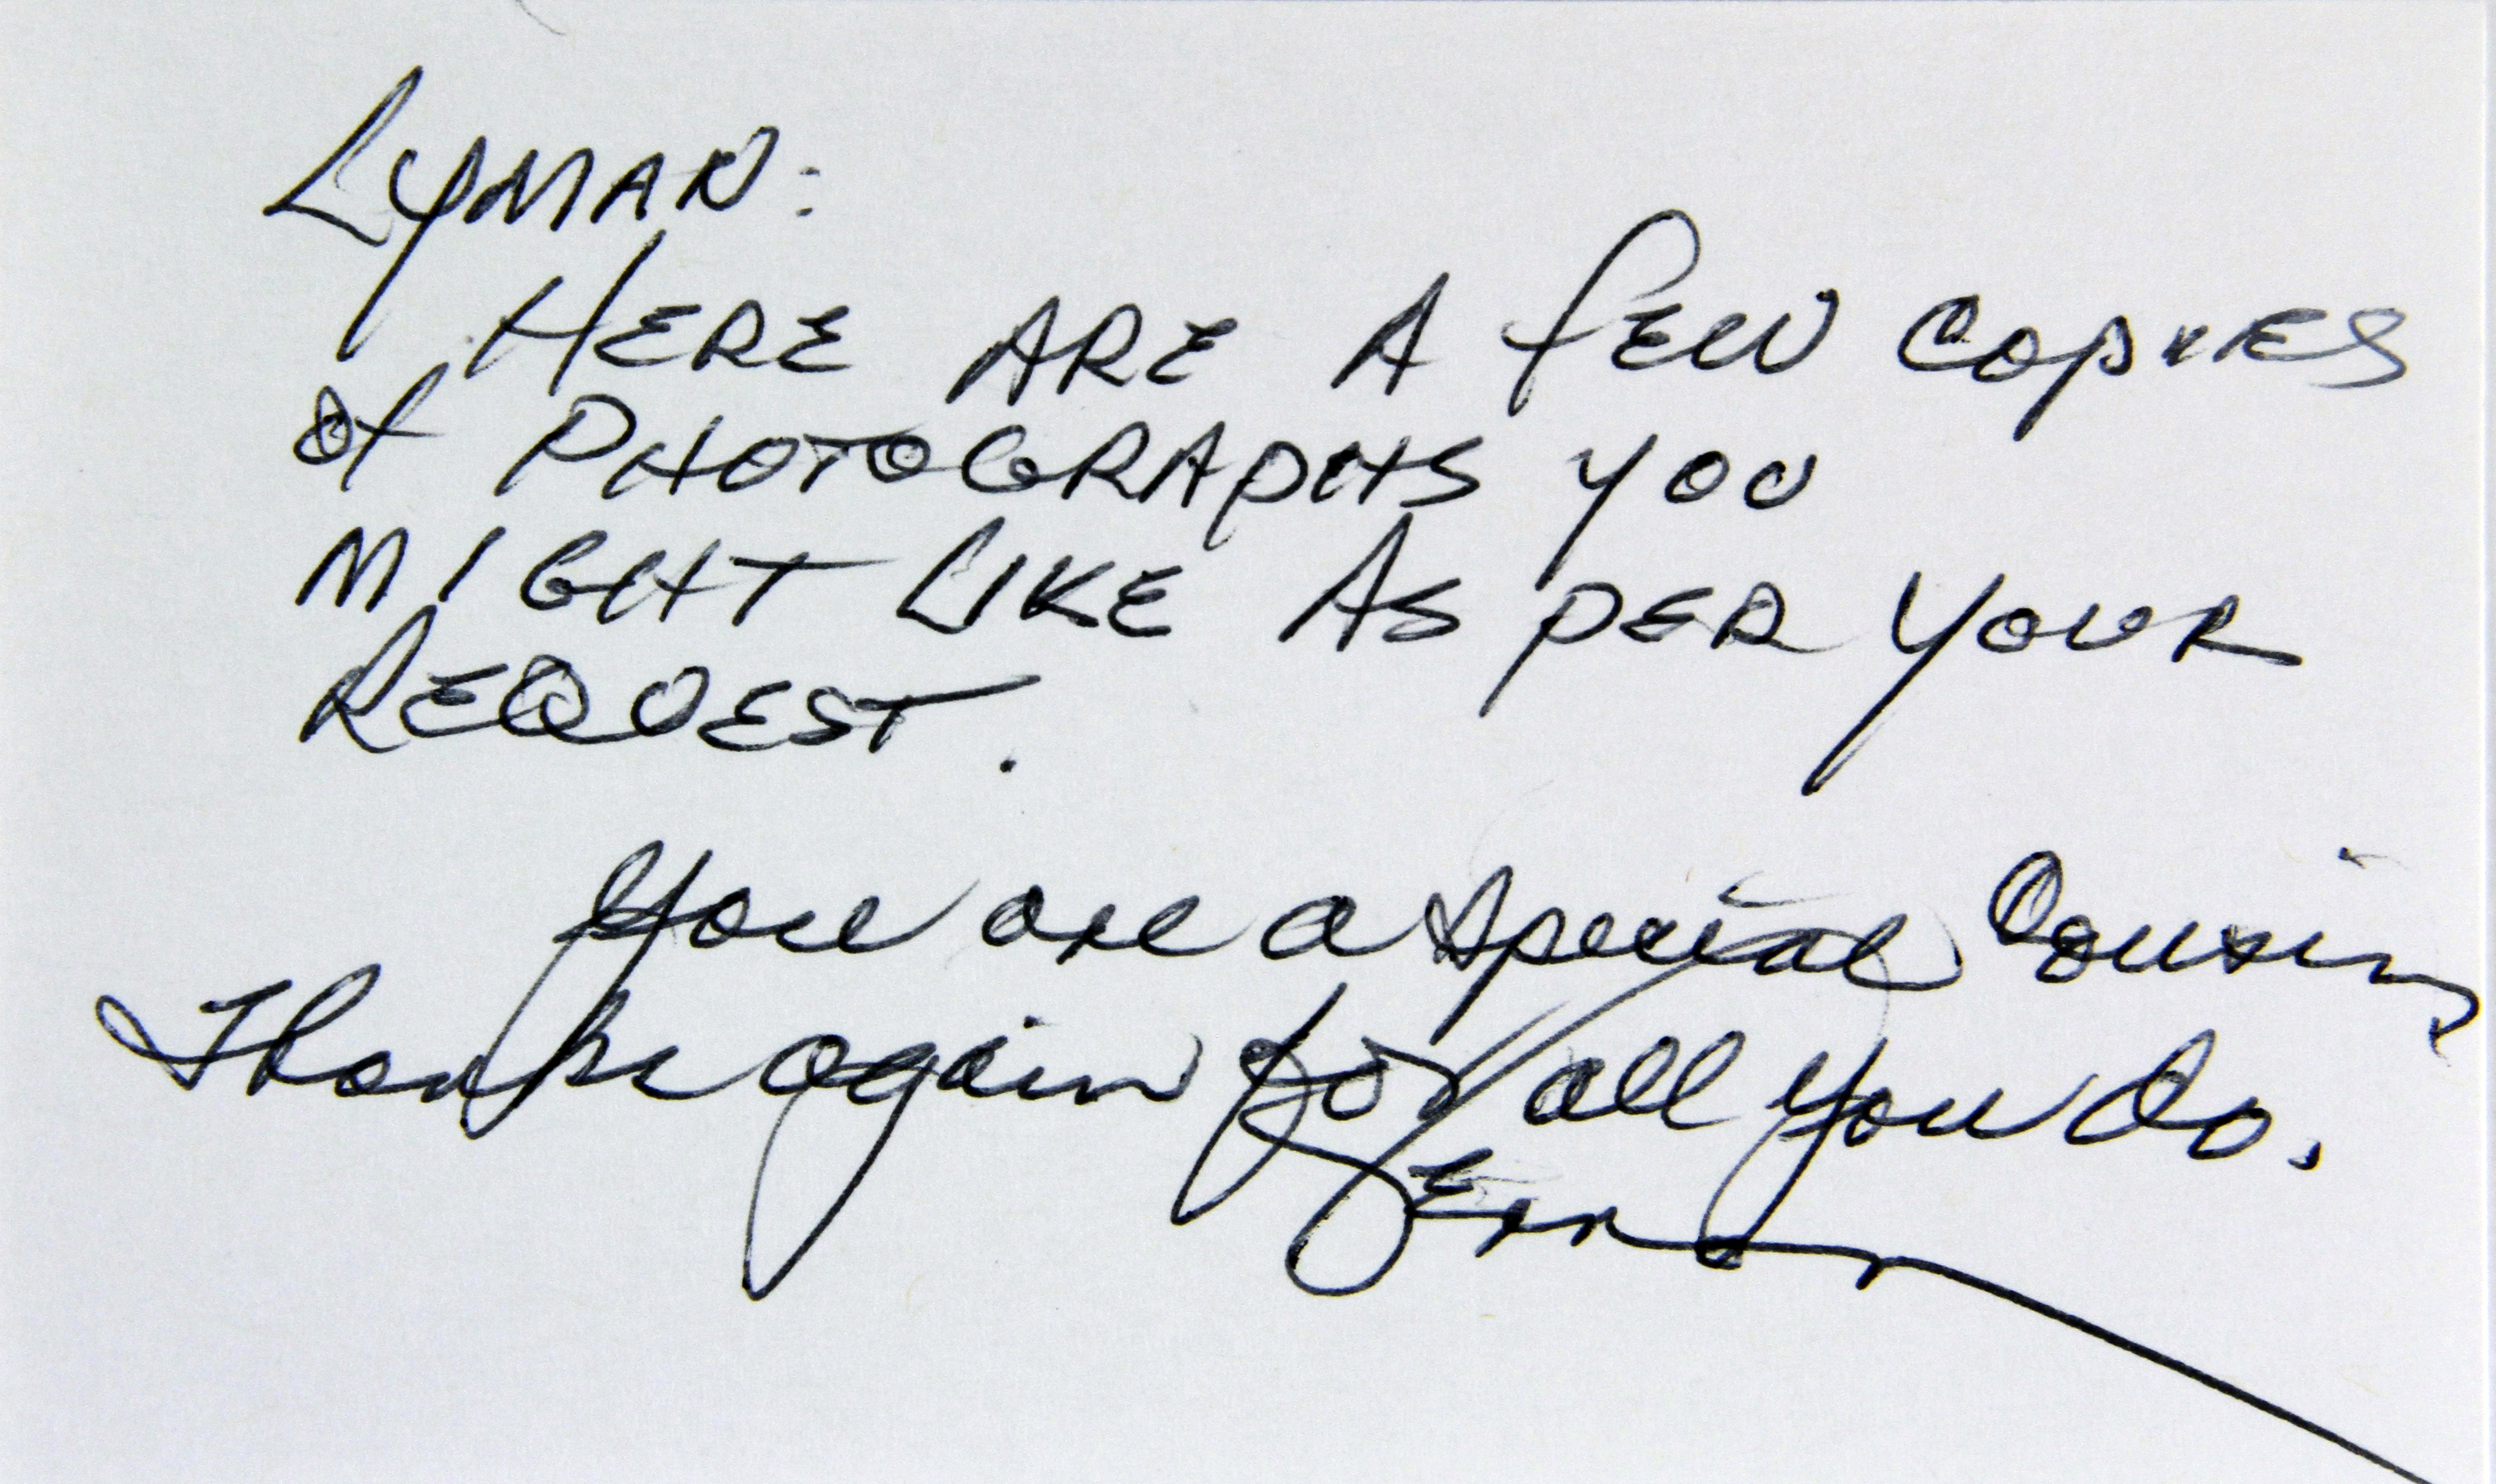 LYMAN:
HERE ARE A FEW COPIES
of PHOTOGRAPHS YOU
MIGHT LIKE AS PER YOUR
REQUEST.
You are a special Cousin,
Thanks again for all you do.